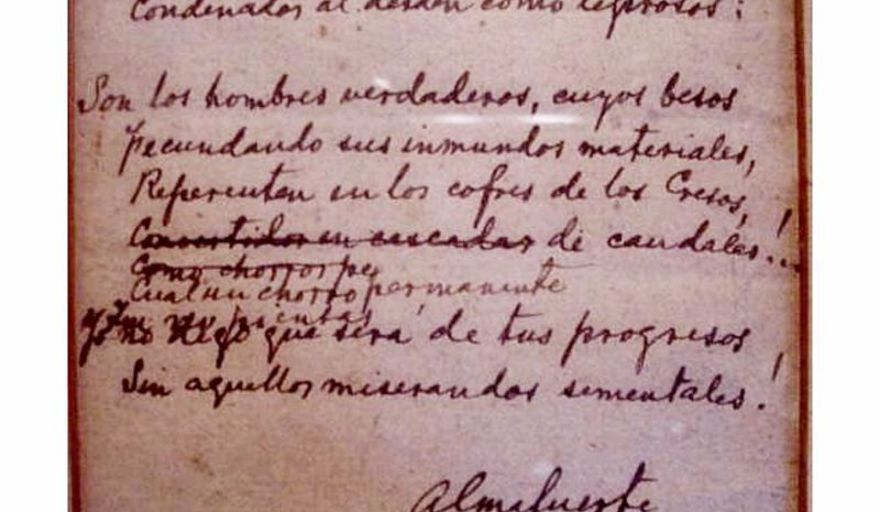 Condenados al desdén como leprosos:
Son los hombres verdaderos, cuyos besos
Fecundando sus inmundos materiales,
Reperenten en los cofres de los Cresos,
Convertidos en cascadas de caudales!..
Como chorros pe
Cual un chorro permanente
no piensas
Yo no digo que será de tus progresos
Sin aquellos miserandos sementales!
Almafuerte